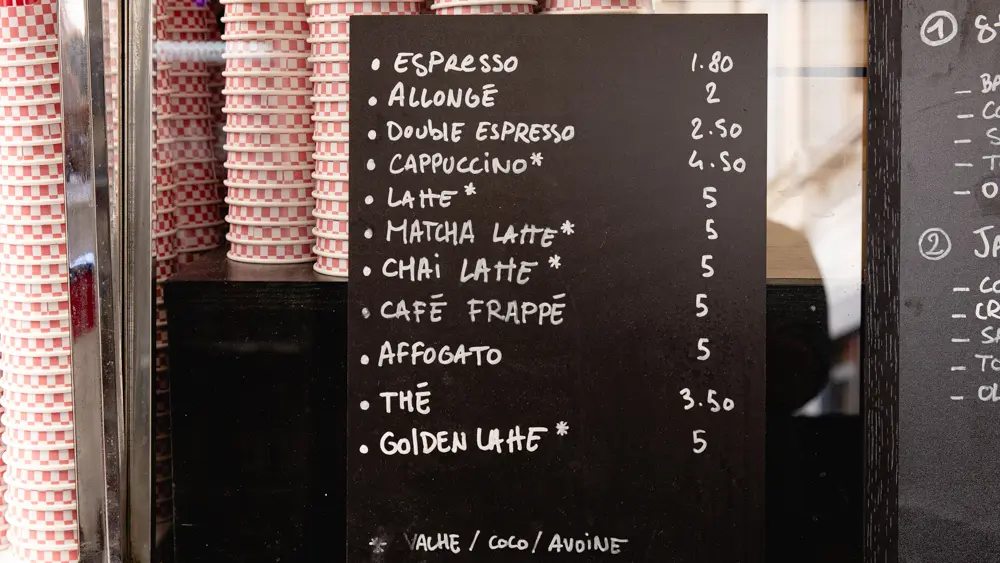 • ESPRESSO 1.80
• ALLONGÉ 2
• DOUBLE ESPRESSO 2.50
• CAPPUCCINO* 4.50
• LATTE* 5
• MATCHA LATTE* 5
• CHAi LATTE* 5
• CAFÉ FRAPPÉ 5
• AFFOGATO 5
• THÉ 3.50
• GOLDEN LATTE* 5
* VACHE / COCO / AVOINE
①
②